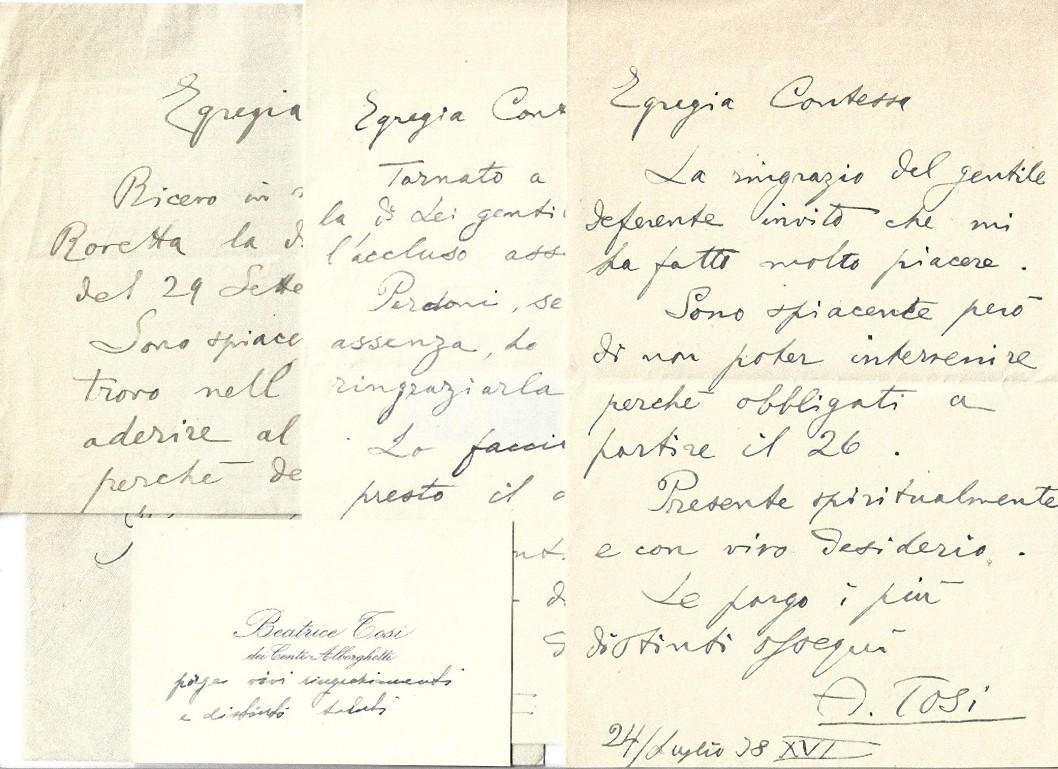 Egregia
Ricevo in
Roretta la
del 29 Sette
Sono spiace
trovo nell
aderire al
perchè de
Egregia Cont
Tornato a
la di Lei genti
l'accluso ass
Perdoni, se
assenza, ho
ringraziarla
Lo faccio
presto il
Egregia Contessa
La ringrazio del gentile
deferente invito che mi
ha fatto molto piacere.
Sono spiacente però
di non poter intervenire
perchè obbligati a
partire il 26.
Presente spiritualmente
e con vivo desiderio.
Le porgo i più
distinti ossequi
A. TOSI
24/Luglio 38 XVI
Beatrice Tosi
dei Conti Alborghetti
porge vivi ringraziamenti
e distinti saluti